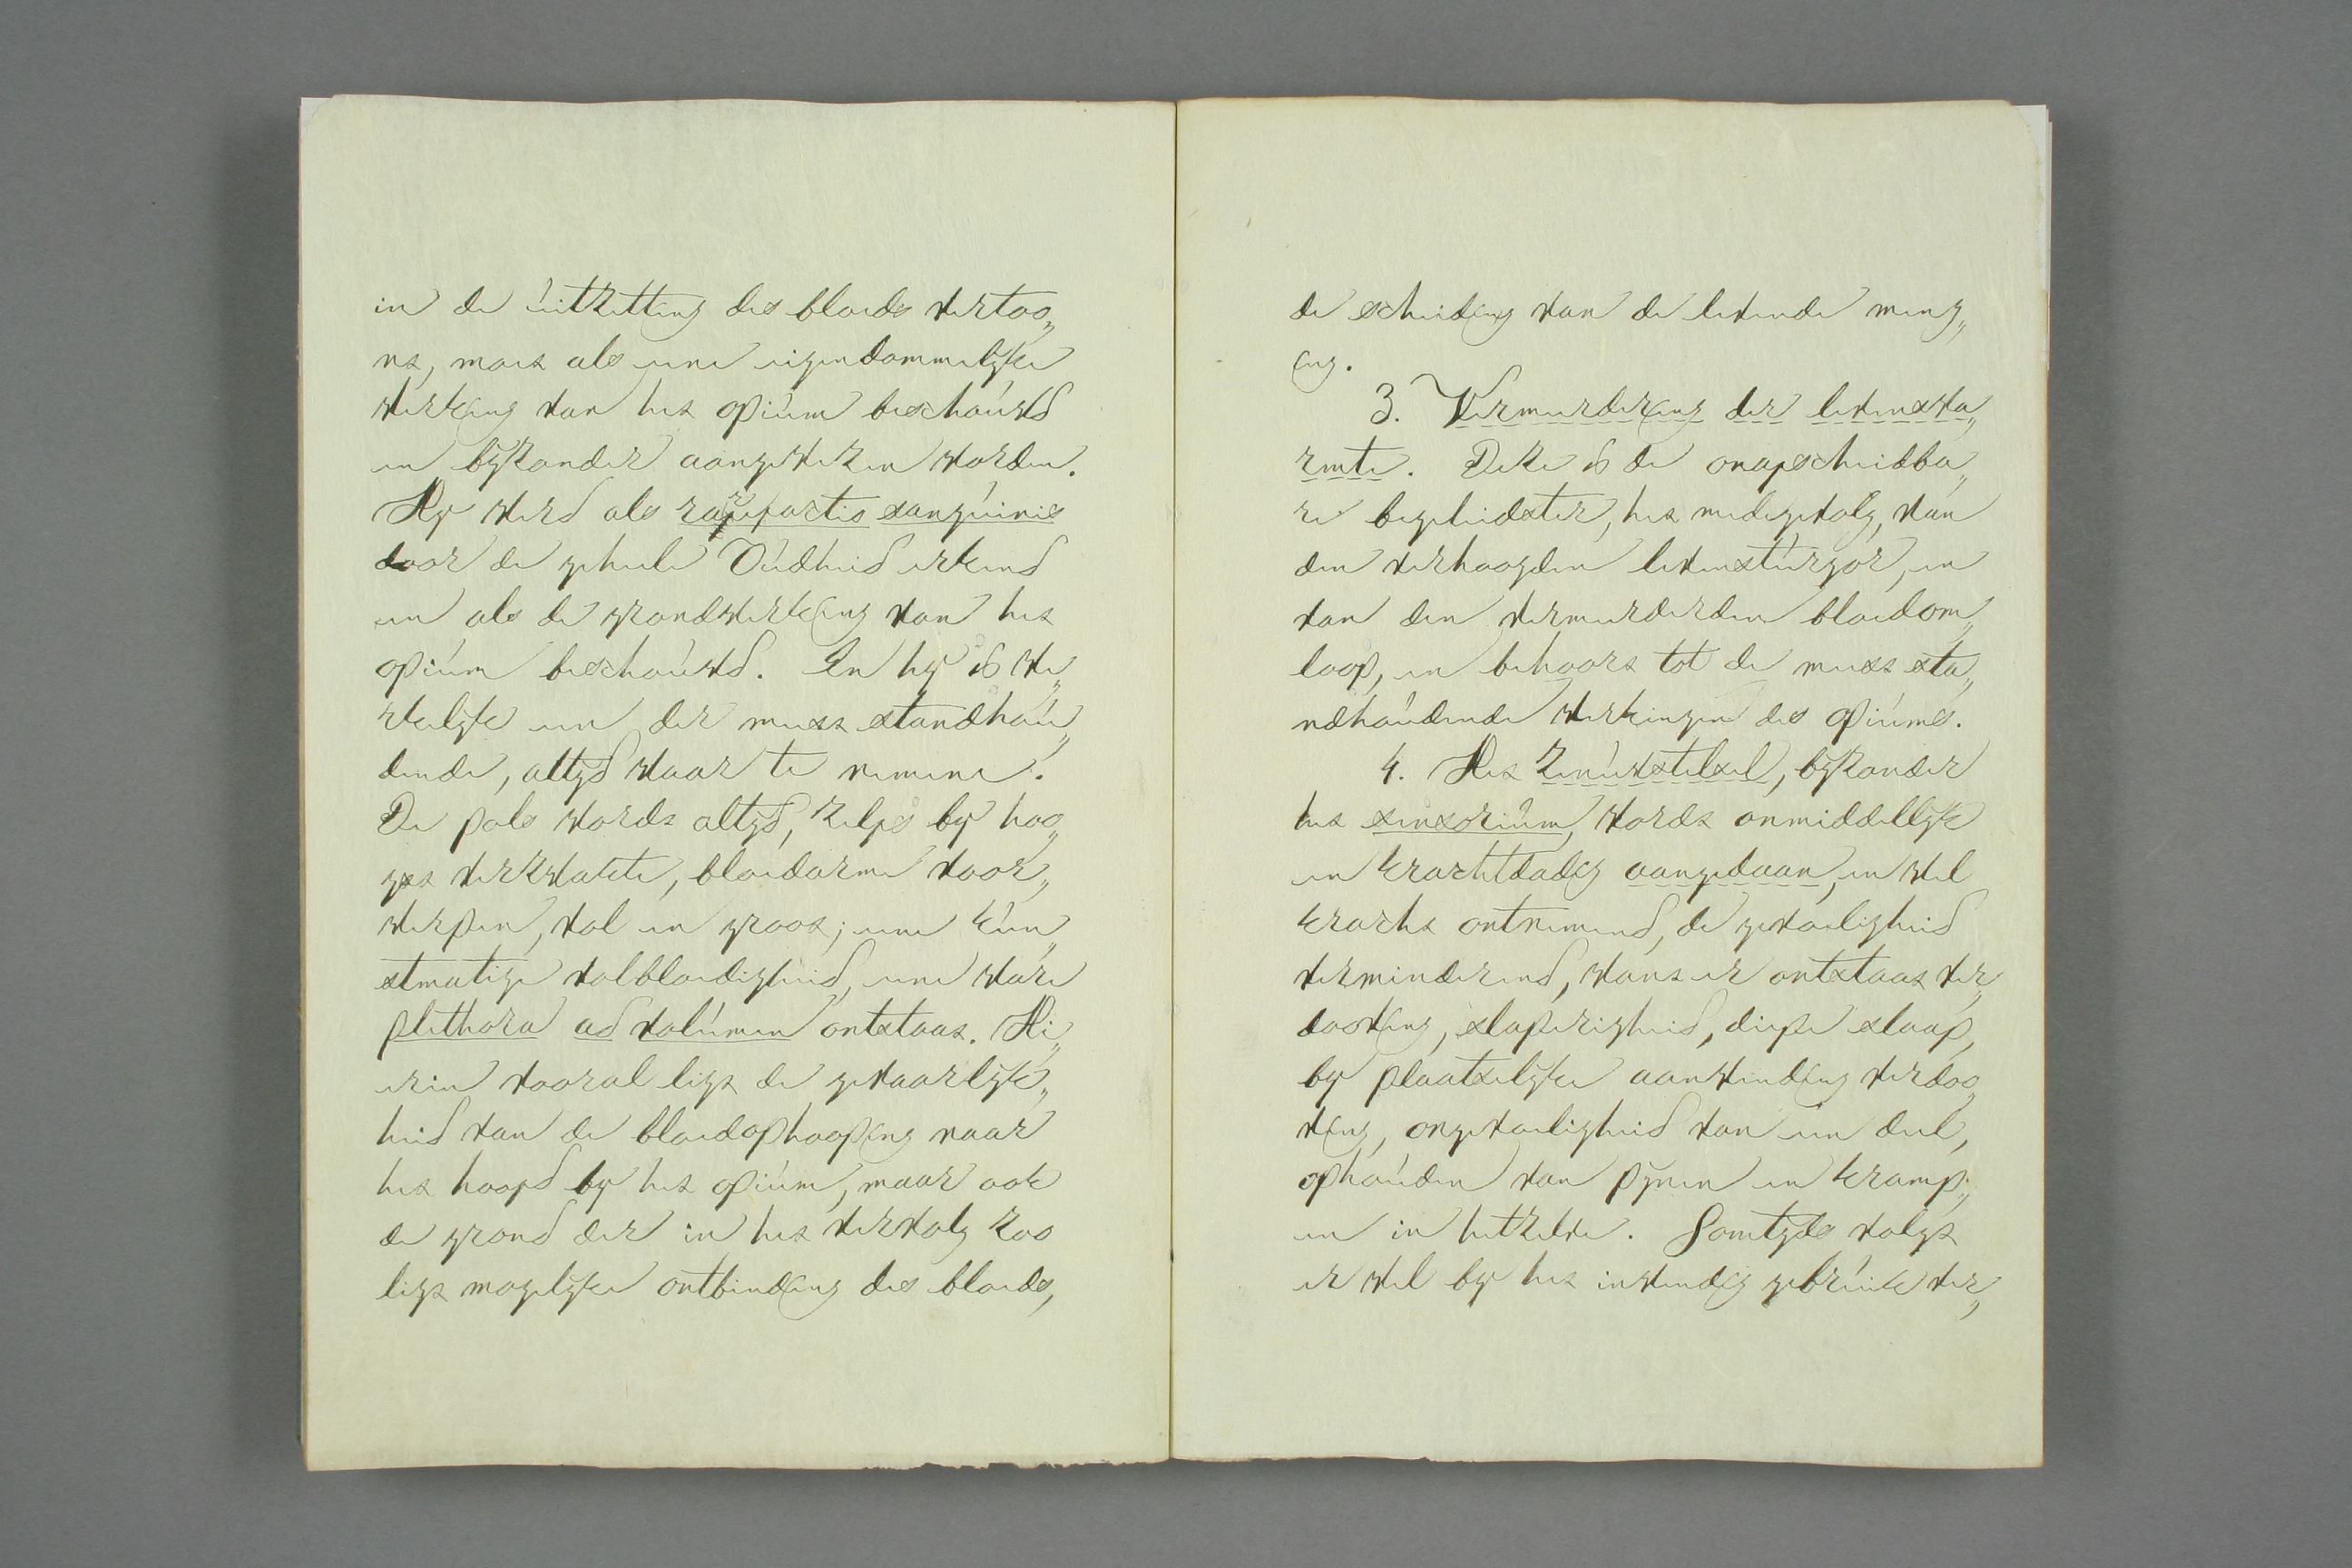 in de uitzetting des bloeds vertoo„
nt, moet als eene eigendommelyke
werking van het opium beschouwd
en byzonder aangewezen worden.
Hy werd als rarefactio sanguinis
door de geheele Oudheid erkend
en als de grondwerking van het
opium beschouwd. En hy is we„
rkelyk een der meest standhou„
dende, altyd waar te nemene.
De pols wordt altyd, zelfs by hoo„
gst verzwakte, bloedarme voor„
werpen, vol en groot; eene kun„
stmatige volbloedigheid, eene ware
plethora ad volumen ontstaat. Hi„
erin vooral ligt de gevaarlyk„
heid van de bloedophooping naar
het hoofd by het opium, maar ook
de grond der in het vervolg zoo
ligt mogelyke ontbinding des bloeds,
de scheiding van de levende meng„
ing.
3. Vermeerdering der levenswa„
rmte. Deze is de onafscheidba„
re begeleidster, het medegevolg, van
den verhoogden levensturgor, en
van den vermeerderden bloedom„
loop, en behoort tot de meest sta„
ndhoudende werkingen des opiums.
4. Het zenuwstelsel, byzonder
het sensorium, wordt onmiddellyk
en krachtdadig aangedaan, en wel
kracht ontnemend, de gevoeligheid
verminderend, want er ontstaat ver„
dooving, slaperigheid, diepe slaap,
by plaatselyke aanwending verdoo„
ving, ongevoeligheid van een deel,
ophouden van pynen en kramp„
en in hetzelve. Somtyds volgt
er wel by het inwendig gebruik ver„